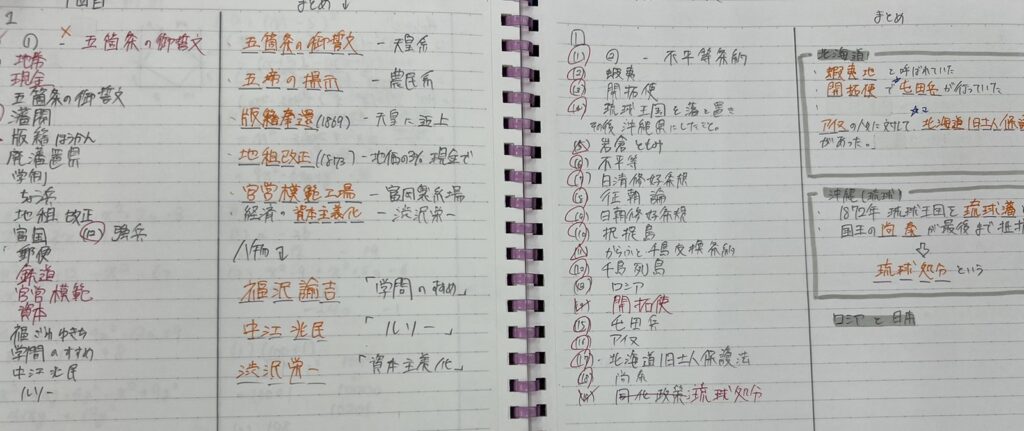 1回目
まとめ↓
1
① - 五箇条の御誓文
地券
現金
五箇条の御誓文
藩閥
版籍 ほうかん
廃藩置県
学制
お浜
地租 改正
富国 (12) 強兵
郵便
鉄道
官営模範
資本
福ざわ ゆきち
学問のすすめ
中江兆民
ルソー
五箇条の御誓文 - 天皇系
五榜の掲示 - 農民系
版籍奉還(1869) - 天皇に返上
地租改正(1873) - 地価の3% 現金で
官営模範工場 - 富岡製糸場
・経済の資本主義化 - 渋沢栄一
人物
福沢諭吉 「学問のすすめ」
中江兆民 「ルソー」
渋沢栄一 「資本主義化」
まとめ
1
(11) ① - 不平等条約
(12) 蝦夷
(13) 開拓使
(14) 琉球王国を落と置き
その後 沖縄県にしたこと。
(15) 岩倉ともみ
(6) 不平等
(7) 日清修好条規
(8) 征韓論
(9) 日朝修好条規
(10) 択捉島
(11) からふと千島交換条約
(12) 千島列島
(13) ロシア
(14) 開拓使
(15) 屯田兵
(16) アイヌ
(17) 北海道旧土人保護法
(18) 尚泰
(19) 同化政策 琉球処分
北海道
・蝦夷地と呼ばれていた
・開拓使で屯田兵が行っていた
アイヌの人々に対して、北海道旧土人保護
があった。」
沖縄(琉球)
・1872年 琉球王国を琉球藩
・国王の尚泰が最後まで抵抗
⇩
琉球処分という
ロシアと日本